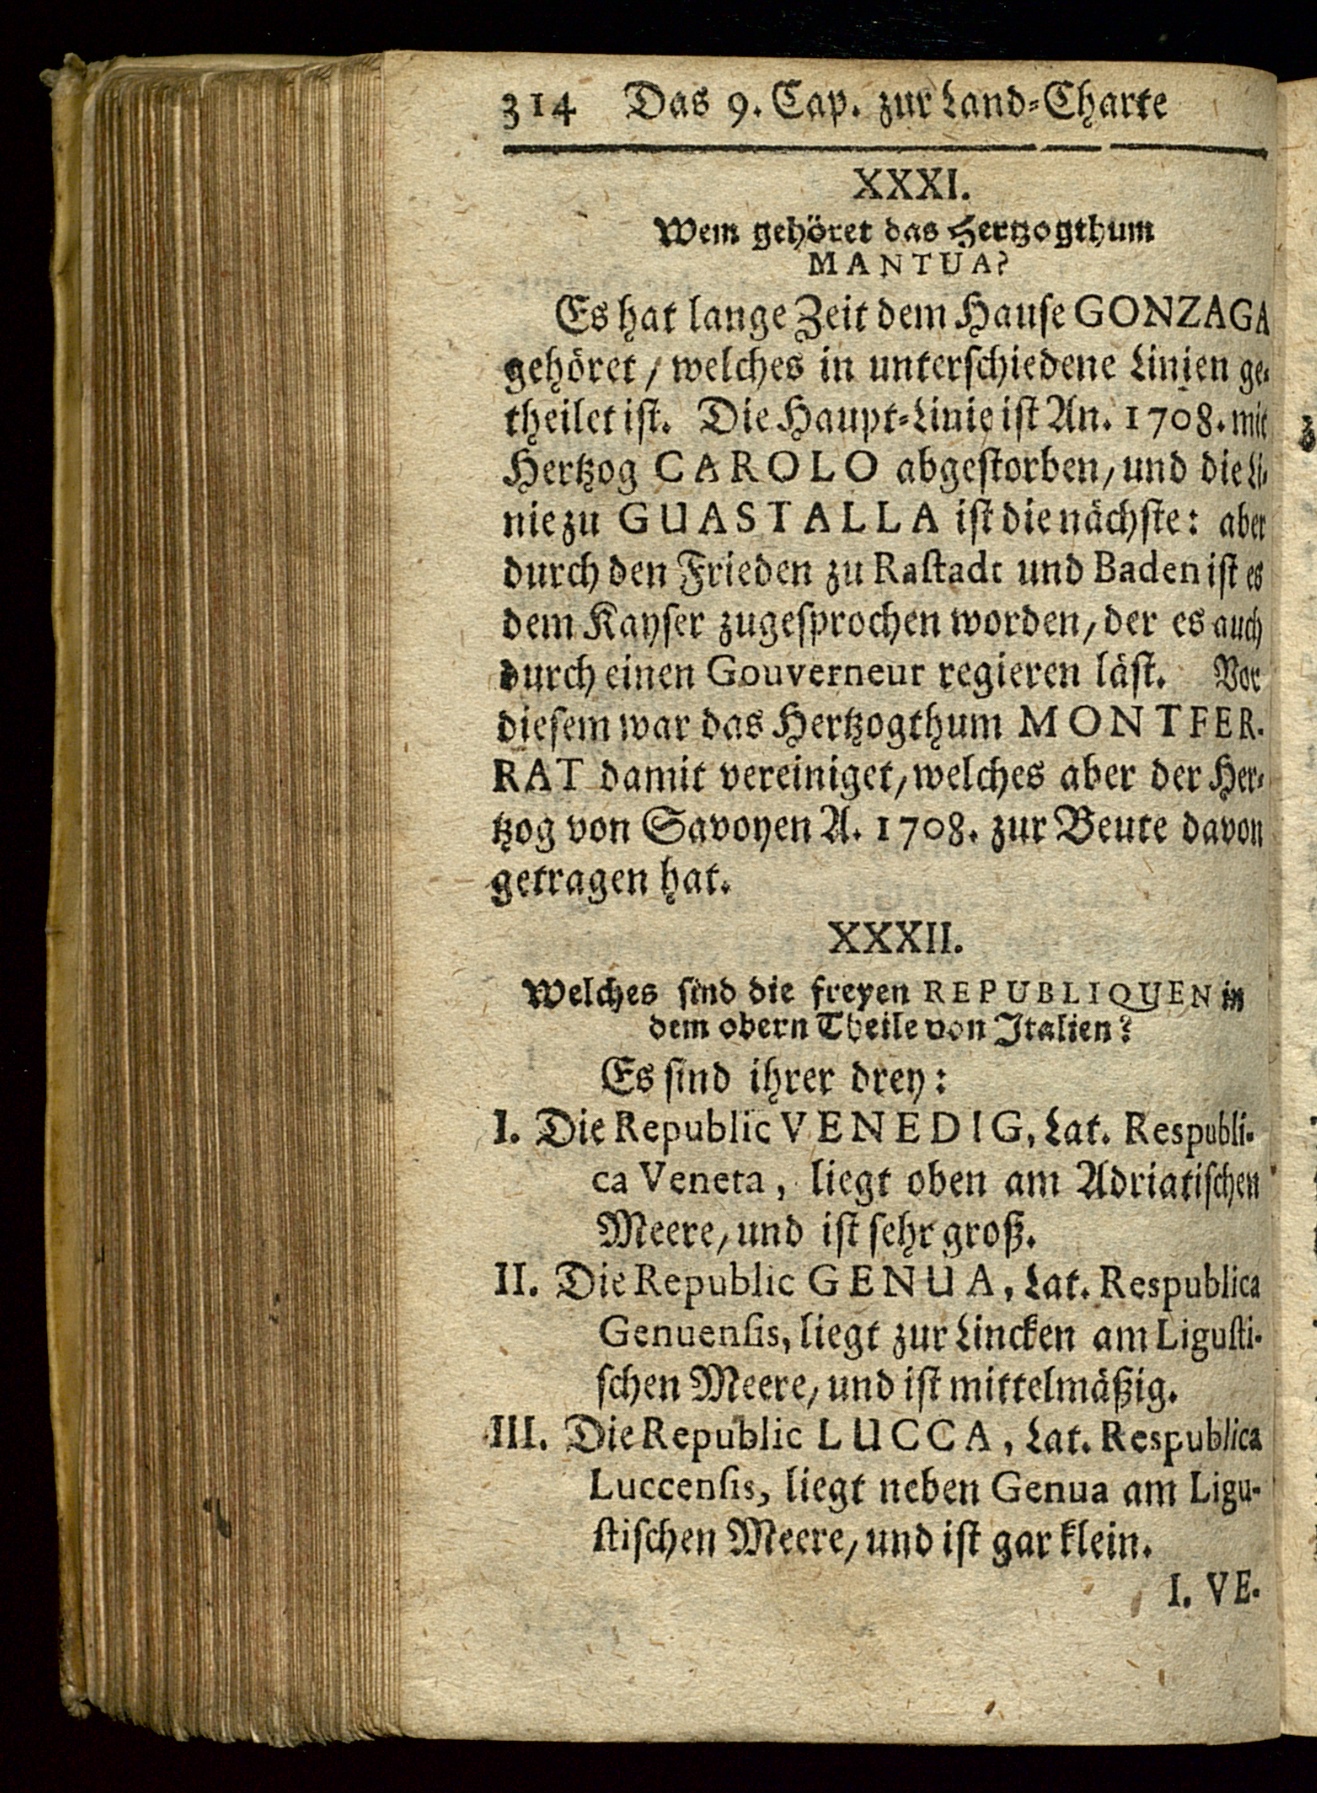 314 Das 9. Cap. zur Land-Charte
XXXI.
Wem gehöret das Hertzogthum
MANTUA?
Es hat lange Zeit dem Hause GONZAGA
gehöret / welches in unterschiedene Linien ge-
theilet ist. Die Haupt-Linie ist An. 1708. mit
Hertzog CAROLO abgestorben, und die Li-
nie zu GUASTALLA ist die nächste: aber
durch den Frieden zu Rastadt und Baden ist es
dem Kayser zugesprochen worden, der es auch
durch einen Gouverneur regieren läst. Vor
diesem war das Hertzogthum MONTFER-
RAT damit vereiniget, welches aber der Her-
tzog von Savoyen A. 1708. zur Beute davon
getragen hat.
XXXII.
Welches sind die freyen REPUBLIQUEN in
dem obern Theile von Italien?
Es sind ihrer drey:
I. Die Republic VENEDIG, Lat. Respubli-
ca Veneta, liegt oben am Adriatischen
Meere, und ist sehr groß.
II. Die Republic GENUA, Lat. Respublica
Genuensis, liegt zur Lincken am Ligusti-
schen Meere, und ist mittelmäßig.
III. Die Republic LUCCA, Lat. Respublica
Luccensis, liegt neben Genua am Ligu-
stischen Meere, und ist gar klein.
I. VE-